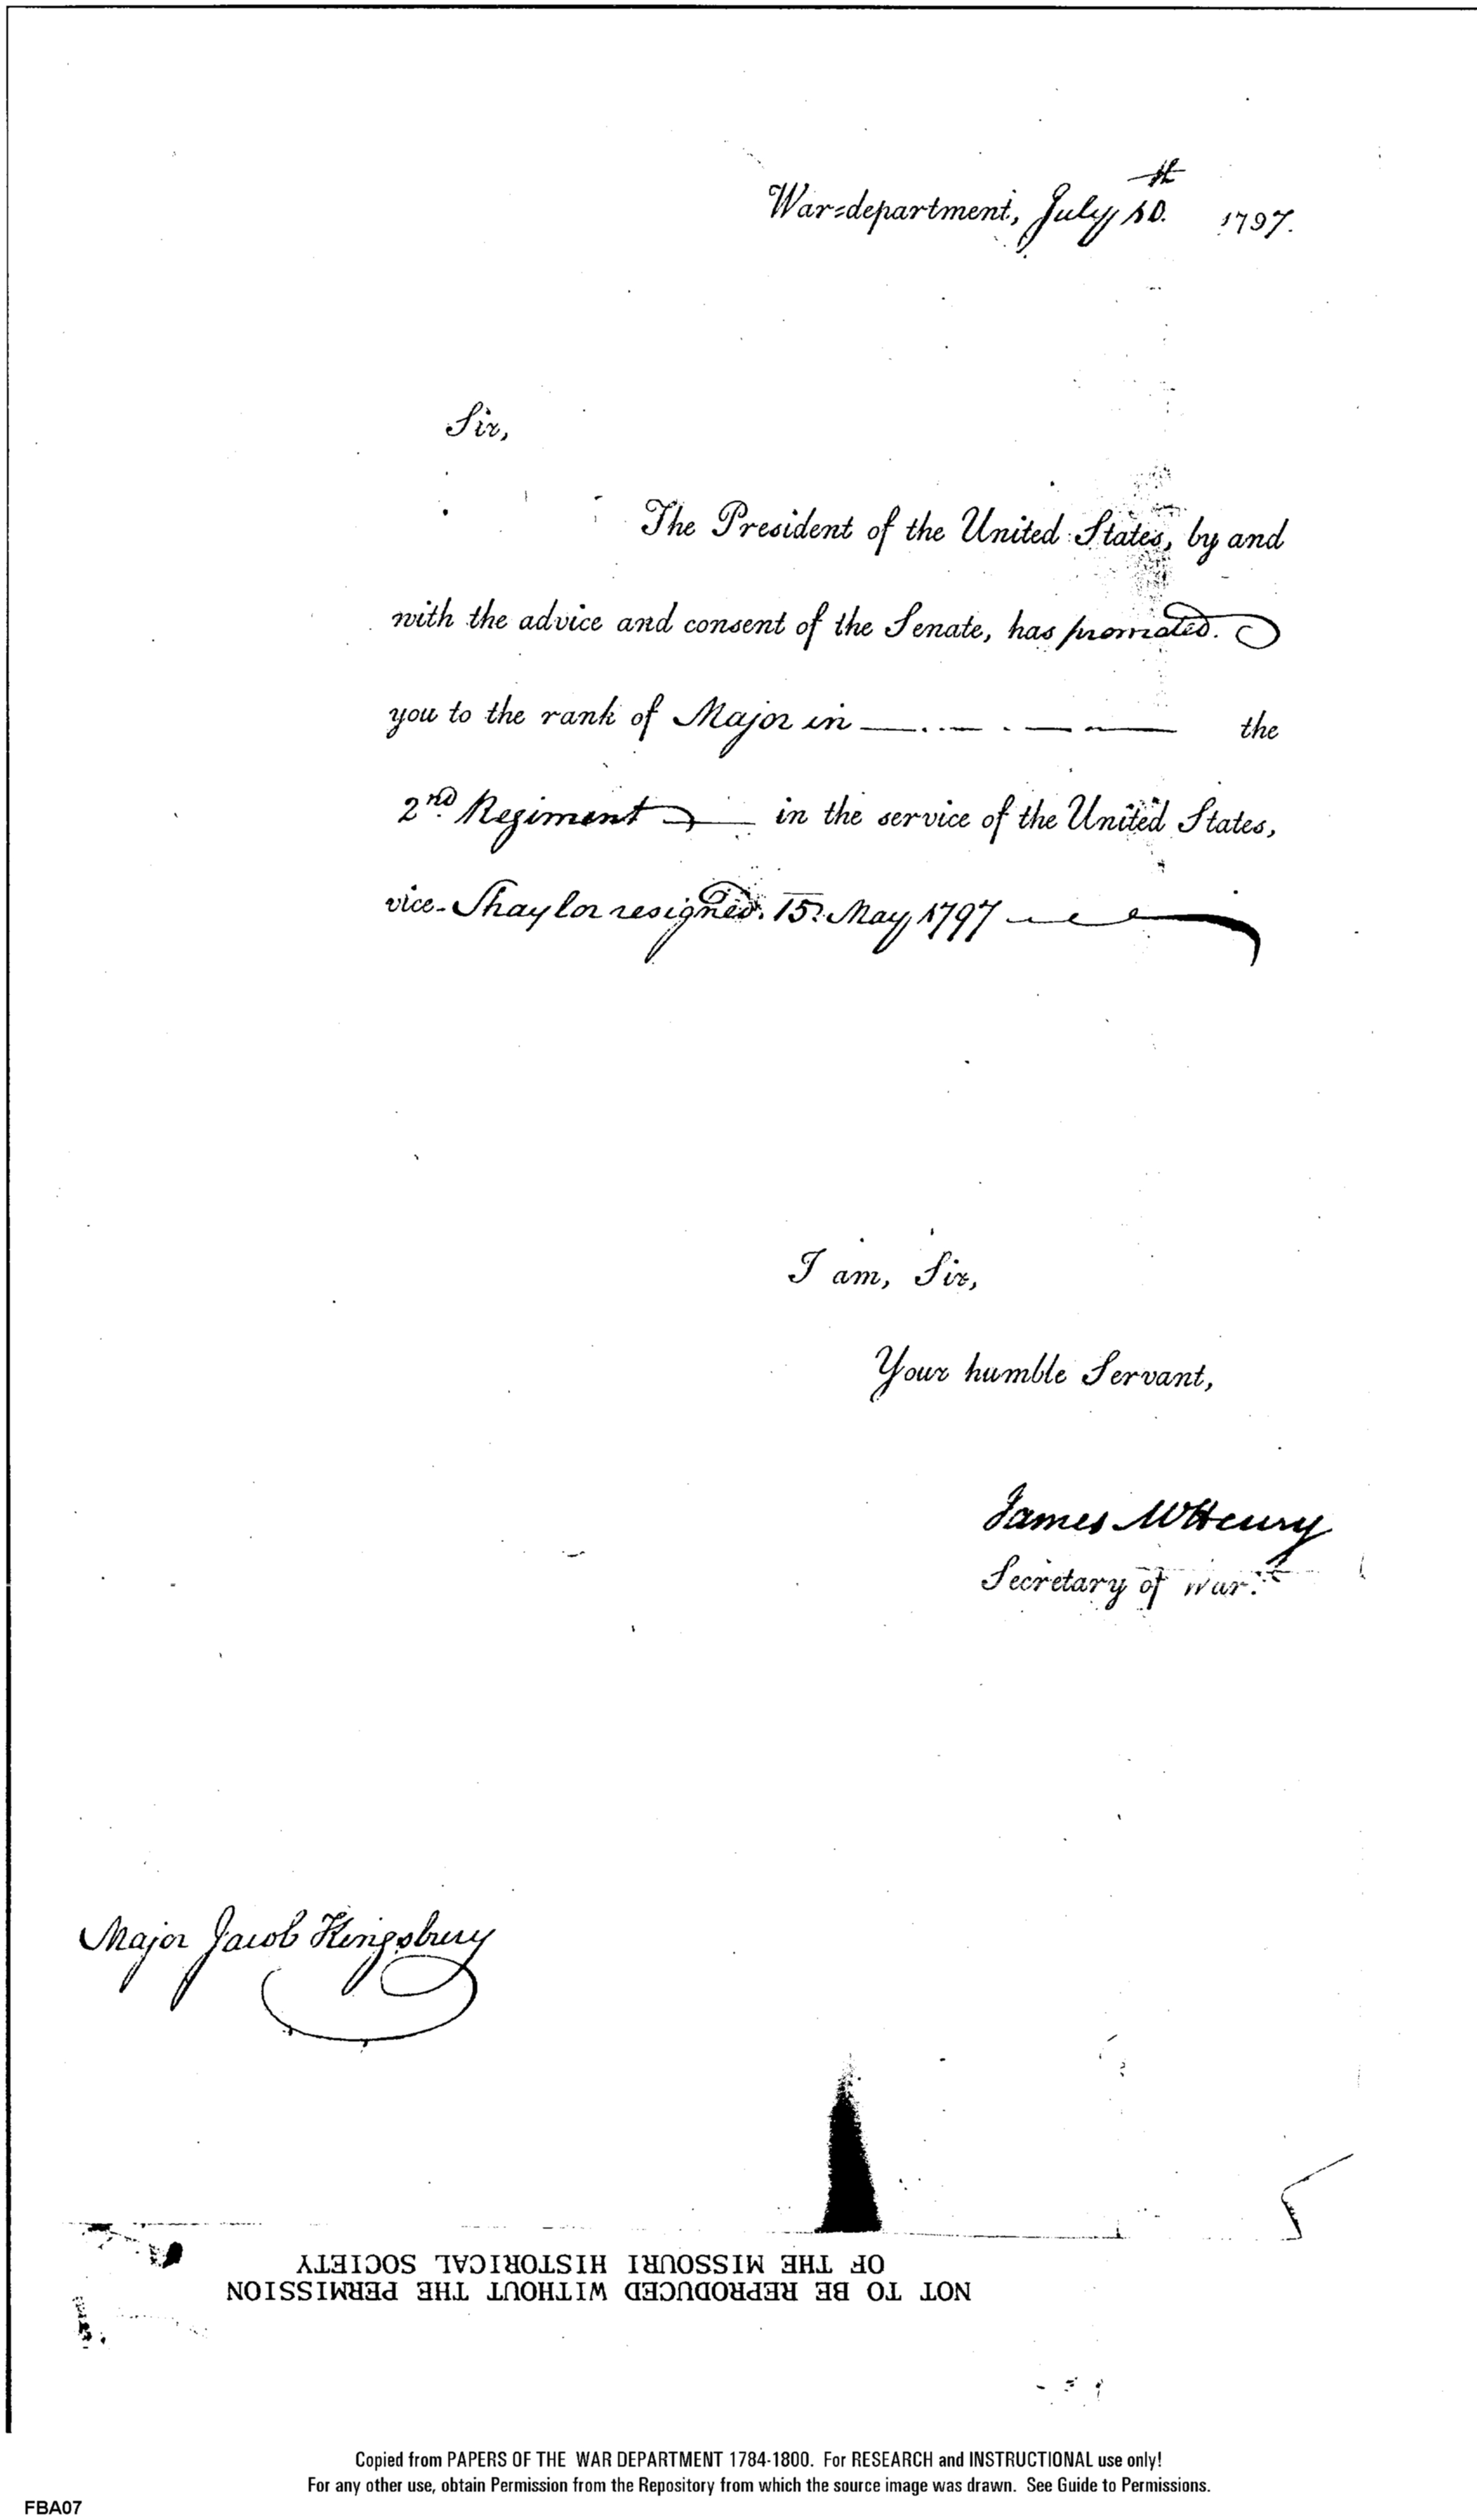 War=department, July 10.th 1797.
Sir,
The President of the United States, by and
with the advice and consent of the Senate, has promoted.
you to the rank of Major in —— the
2nd. Regiment — in the service of the United States,
vice- Shaylor resigned. 15. May 1797
I am, Sir,
Your humble Servant,
James McHenry
Secretary of war.
Major Jacob Kingsbury
NOT TO BE REPRODUCED WITHOUT THE PERMISSION
OF THE MISSOURI HISTORICAL SOCIETY
Copied from PAPERS OF THE WAR DEPARTMENT 1784-1800. For RESEARCH and INSTRUCTIONAL use only!
For any other use, obtain Permission from the Repository from which the source image was drawn. See Guide to Permissions.
FBA07